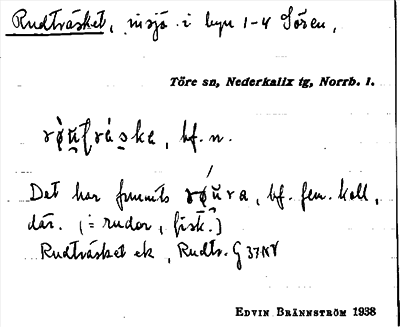 Rudträsket, insjö i byn 1-4 Sören,
Töre sn, Nederkalix tg, Norrb. l.
bf. n.
Det har funnits bf. fem. koll,
där. (= rudor, fisk.)
Rudträsket ek, Rudtr. G 37 NV
EDVIN BRÄNNSTRÖM 1938